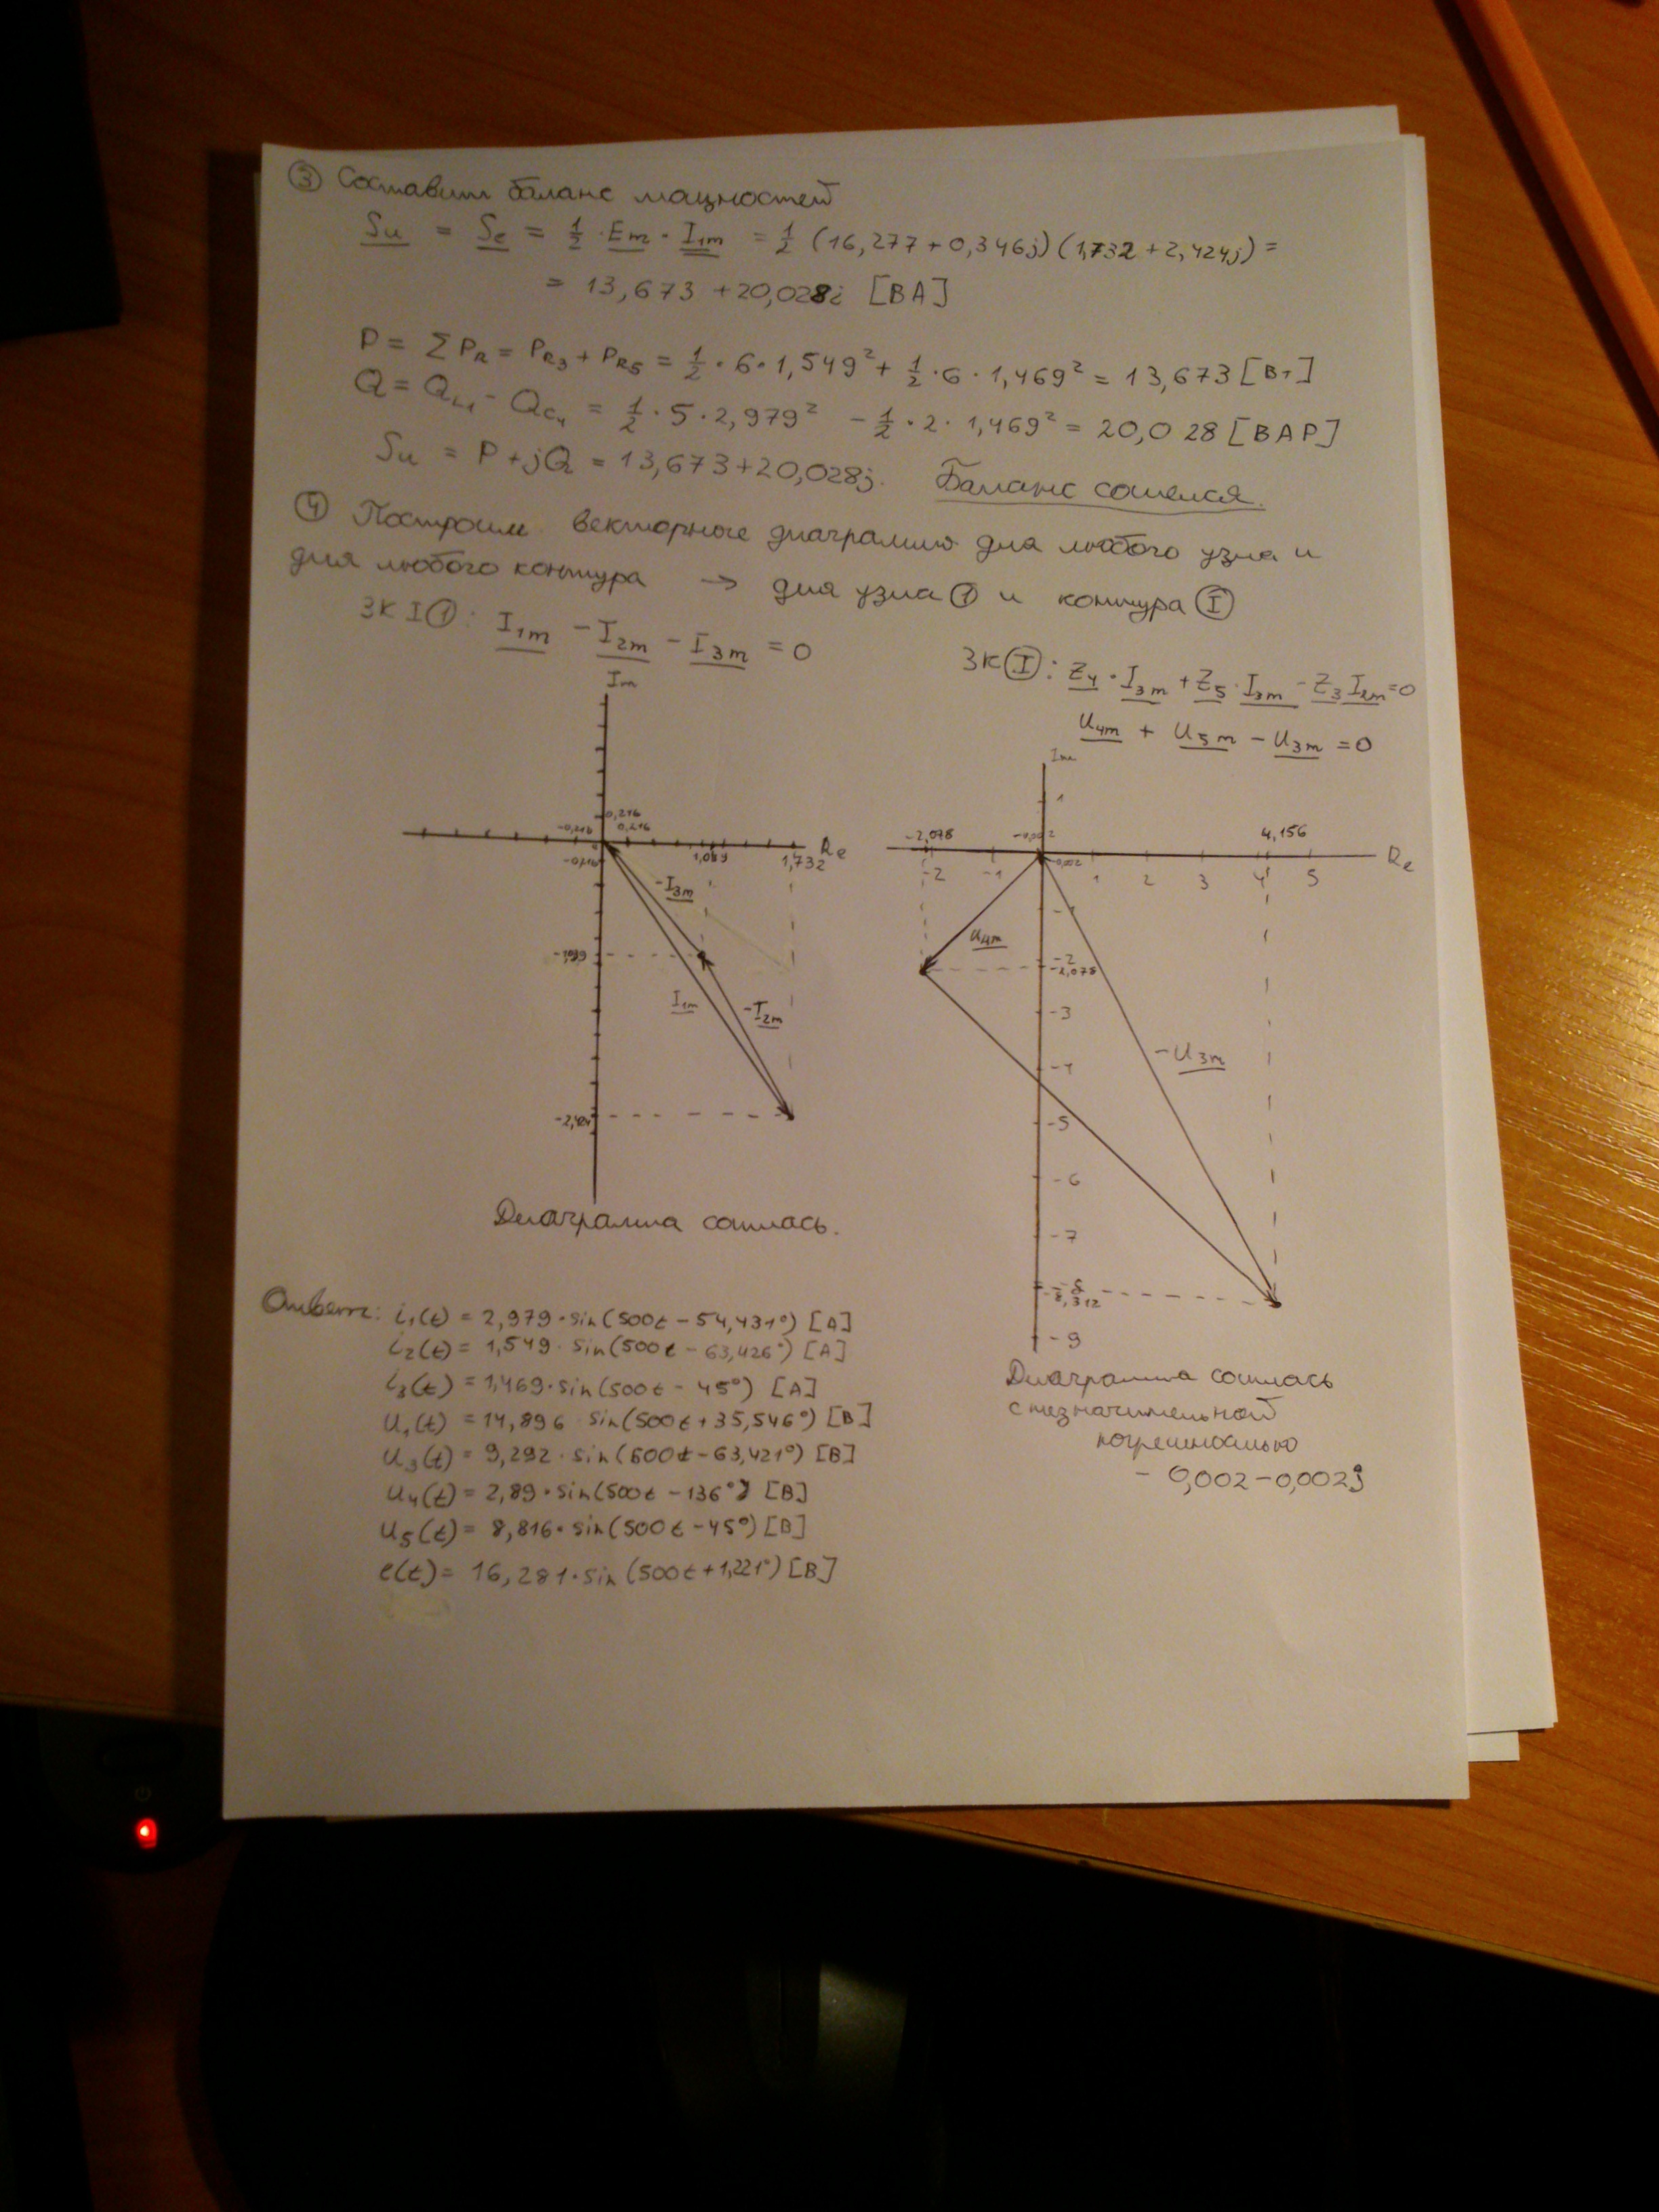 ③ Составим баланс мощностей
Su = Se = 1/2 · Em · I1m = 1/2 (16,277+0,346j)(1,732+2,424j) =
= 13,673 +20,028i [ВА]
P = ΣPR = PR3 + PR5 = 1/2 · 6 · 1,549² + 1/2 · 6 · 1,469² = 13,673 [Вт]
Q = QL1 - QC4 = 1/2 · 5 · 2,979² - 1/2 · 2 · 1,469² = 20,028 [ВАР]
Su = P + jQ = 13,673+20,028j. Баланс сошелся.
④ Построим векторные диаграммы для любого узла и
для любого контура → для узла ① и контура Ⓘ
ЗКI①: I1m - I2m - I3m = 0
ЗКⒾ: Z4 · I3m + Z5 · I3m - Z3 I2m = 0
U4m + U5m - U3m = 0
Im
0,216
-0,216
0,216
-0,216
1,732
Re
-I3m
I1m
-I2m
-2,424
Диаграмма сошлась.
Im
1
-2,078
-0,002
4,156
-0,002
-2 -1 1 2 3 4 5
Re
-1
U4m
-2
-2,078
-3
-U3m
-4
-5
-6
-7
-8
-8,312
-9
Диаграмма сошлась
с незначительной
погрешностью
- 0,002-0,002j
Ответ: i1(t) = 2,979·sin(500t-54,431°) [A]
i2(t) = 1,549·sin(500t-63,426°) [A]
i3(t) = 1,469·sin(500t-45°) [A]
U1(t) = 14,896·sin(500t+35,546°) [B]
U3(t) = 9,292·sin(500t-63,421°) [B]
U4(t) = 2,89·sin(500t-136°) [B]
U5(t) = 8,816·sin(500t-45°) [B]
e(t) = 16,281·sin(500t+1,221°) [B]